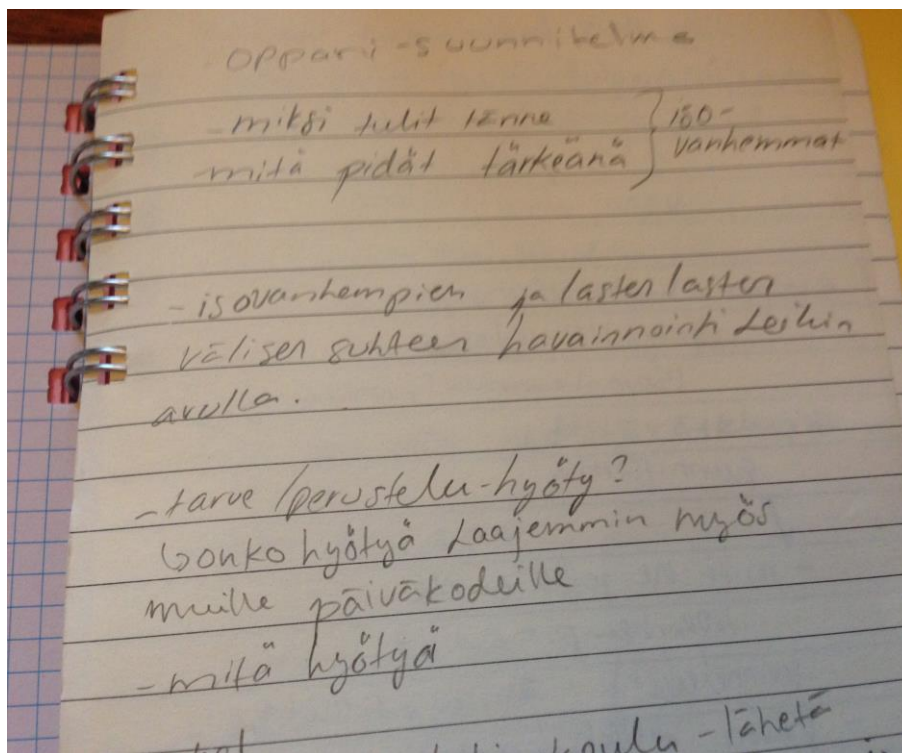 oppari-suunnitelma
-miksi tulit tänne } iso-
-mitä pidät tärkeänä } vanhemmat
-isovanhempien ja lastenlasten
välisen suhteen havainnointi Leikin
avulla.
-tarve/perustelu-hyöty?
↳onko hyötyä Laajemmin myös
muille päiväkodeille
-mitä hyötyä
koulu-lähetä